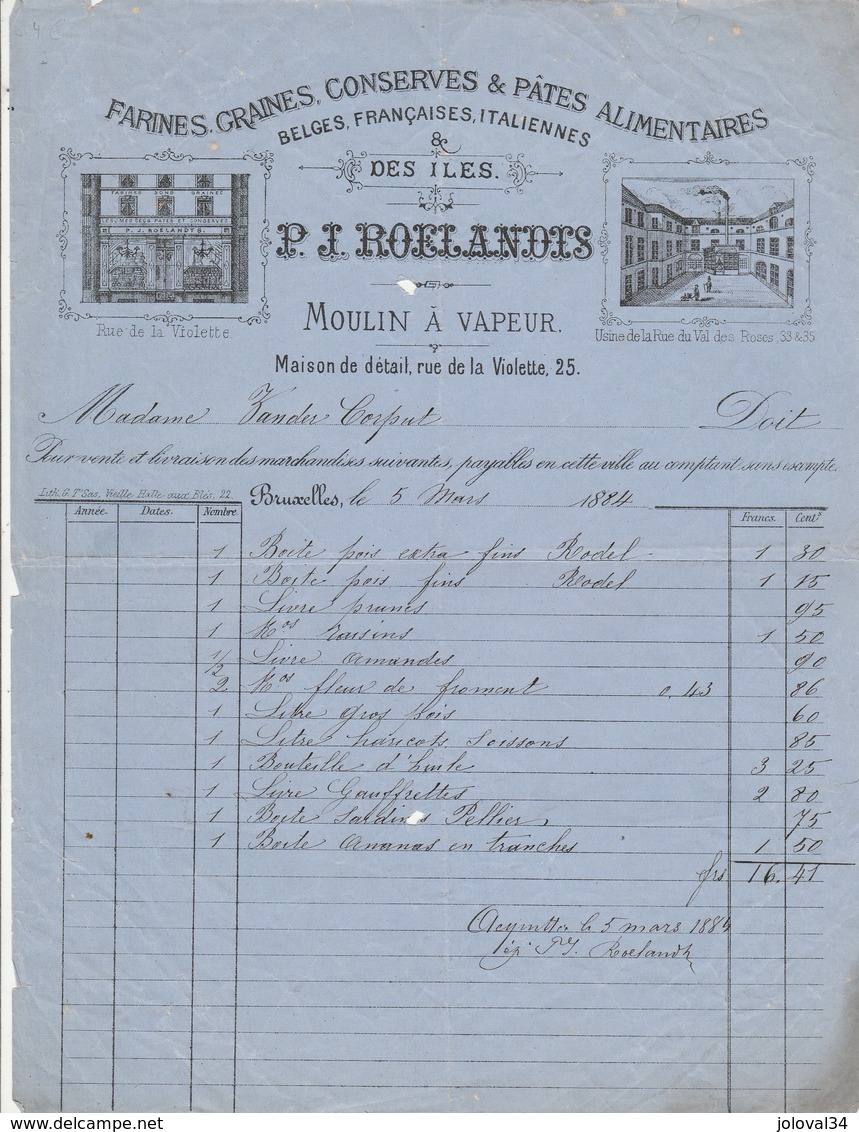 FARINES, GRAINES, CONSERVES & PÂTES ALIMENTAIRES
BELGES, FRANÇAISES, ITALIENNES
&
DES ILES.
P. J. ROELANDTS
FARINES SONS GRAINES
LÉGUMES SECS PATES ET CONSERVES
P. J. ROELANDTS.
Rue de la Violette.
MOULIN À VAPEUR.
Usine de la Rue du Val des Roses, 33 & 35
Maison de détail, rue de la Violette, 25.
Madame Vander Corput Doit
Pour vente et livraison des marchandises suivantes, payables en cette ville au comptant sans escompte.
Lith. G. T'Sas, Vieille Halle aux Blés, 22.
Bruxelles, le 5 Mars 1884
Année. Dates. Nombre. Francs. Cents
1 Boite pois extra fins Rodel 1 30
1 Boite pois fins Rodel 1 15
1 Livre prunes 95
1 Kos raisins 1 50
1/2 Livre amandes 90
2 Kos fleur de froment 0.43 86
1 Litre gros pois 60
1 Litre haricots Soissons 85
1 Bouteille d'huile 3 25
1 Livre Gauffrettes 2 80
1 Boite Sardines Pellier 75
1 Boite Ananas en tranches 1 50
frs 16.41
le 5 mars 1884
P. J. Roelandts
delcampe.net
joloval34